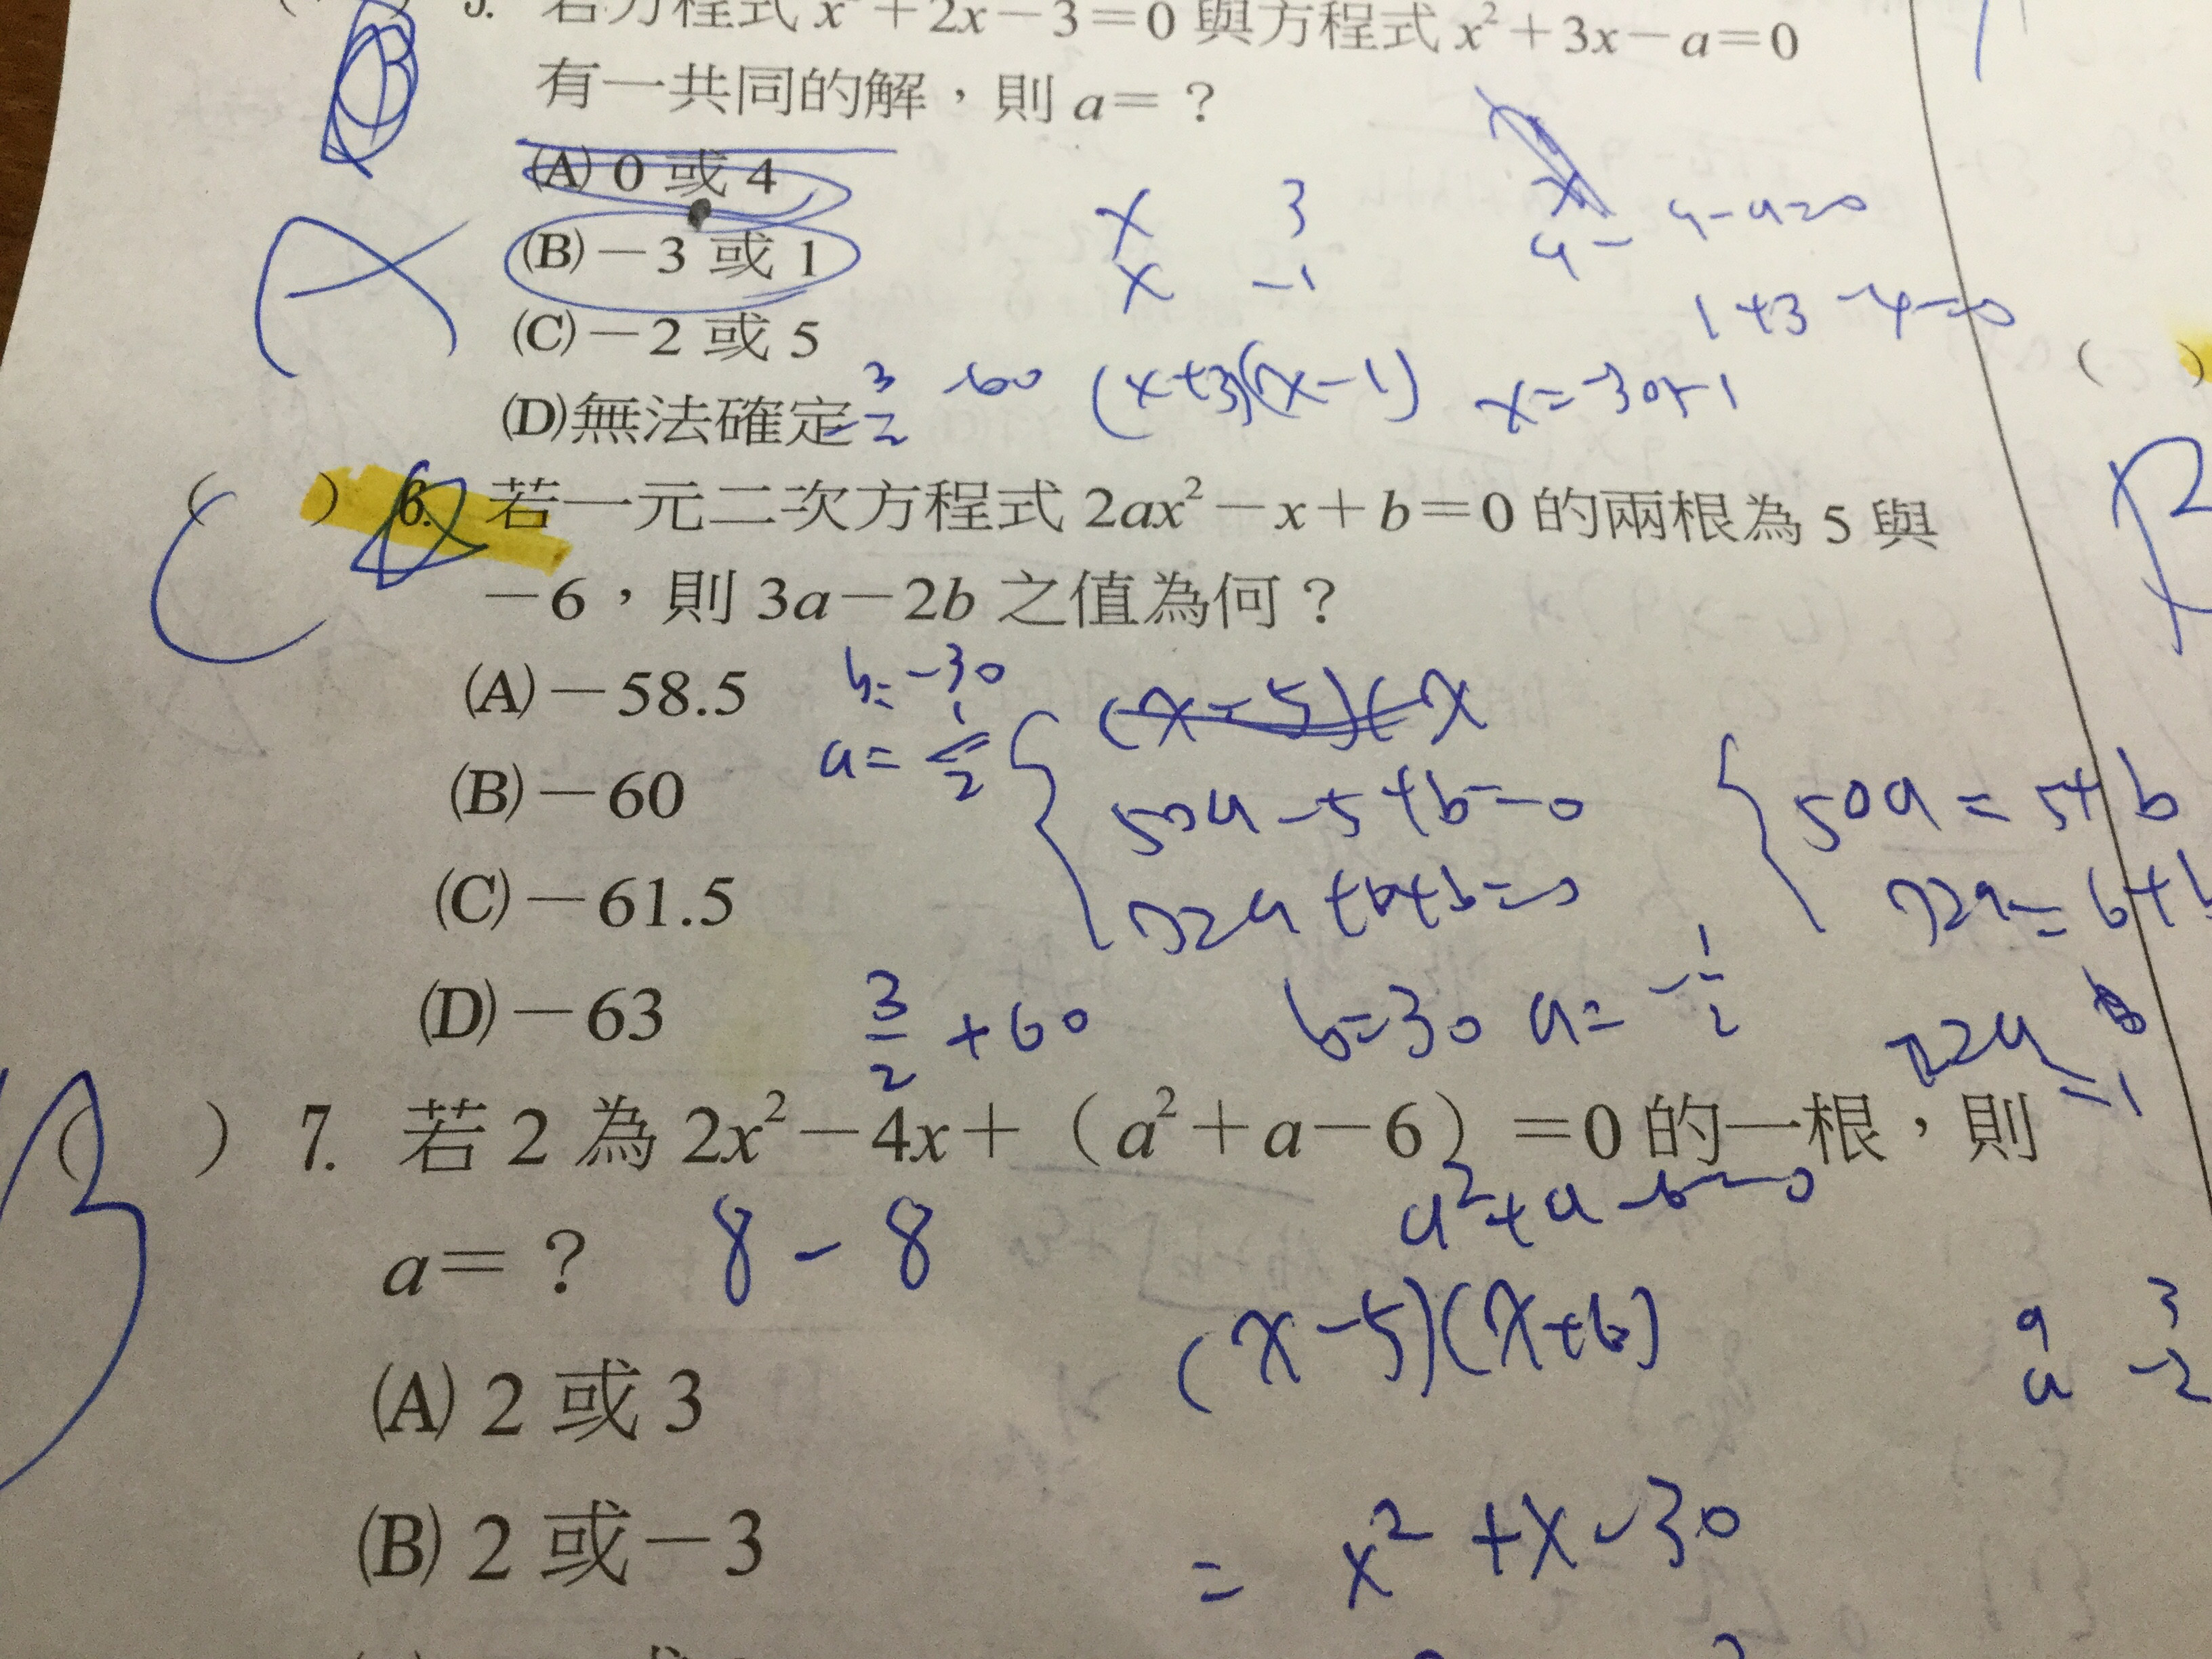 5. 若方程式 x²+2x−3=0 與方程式 x²+3x−a=0
有一共同的解，則 a=？
(A) 0 或 4
(B)−3 或 1
(C)−2 或 5
(D)無法確定
x 3
x −1
4−a=0
1+3−4=0
(x+3)(x−1) x=−3or1
( ) 6. 若一元二次方程式 2ax²−x+b=0 的兩根為 5 與
−6，則 3a−2b 之值為何？
C
(A)−58.5
(B)−60
(C)−61.5
(D)−63
b=−30
50a−5+b=0
72a+6+b=0
50a=5+b
3/2+60
b=30 a=−1/2
( ) 7. 若 2 為 2x²−4x+（a²+a−6）=0 的一根，則
a=？
8−8
a²+a−6=0
(x−5)(x+6)
a 3
a −2
(A) 2 或 3
(B) 2 或−3
= x²+x−30